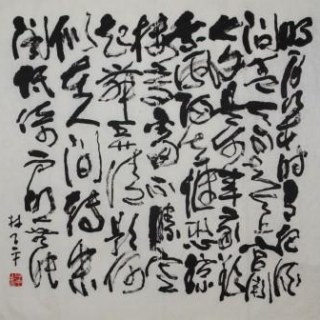 明月几时有把酒
问青天不知天上宫阙
今夕是何年我欲
乘风归去惟恐琼
楼玉宇高处不胜寒
起舞弄清影何
似在人间转朱
阁低绮户照无眠